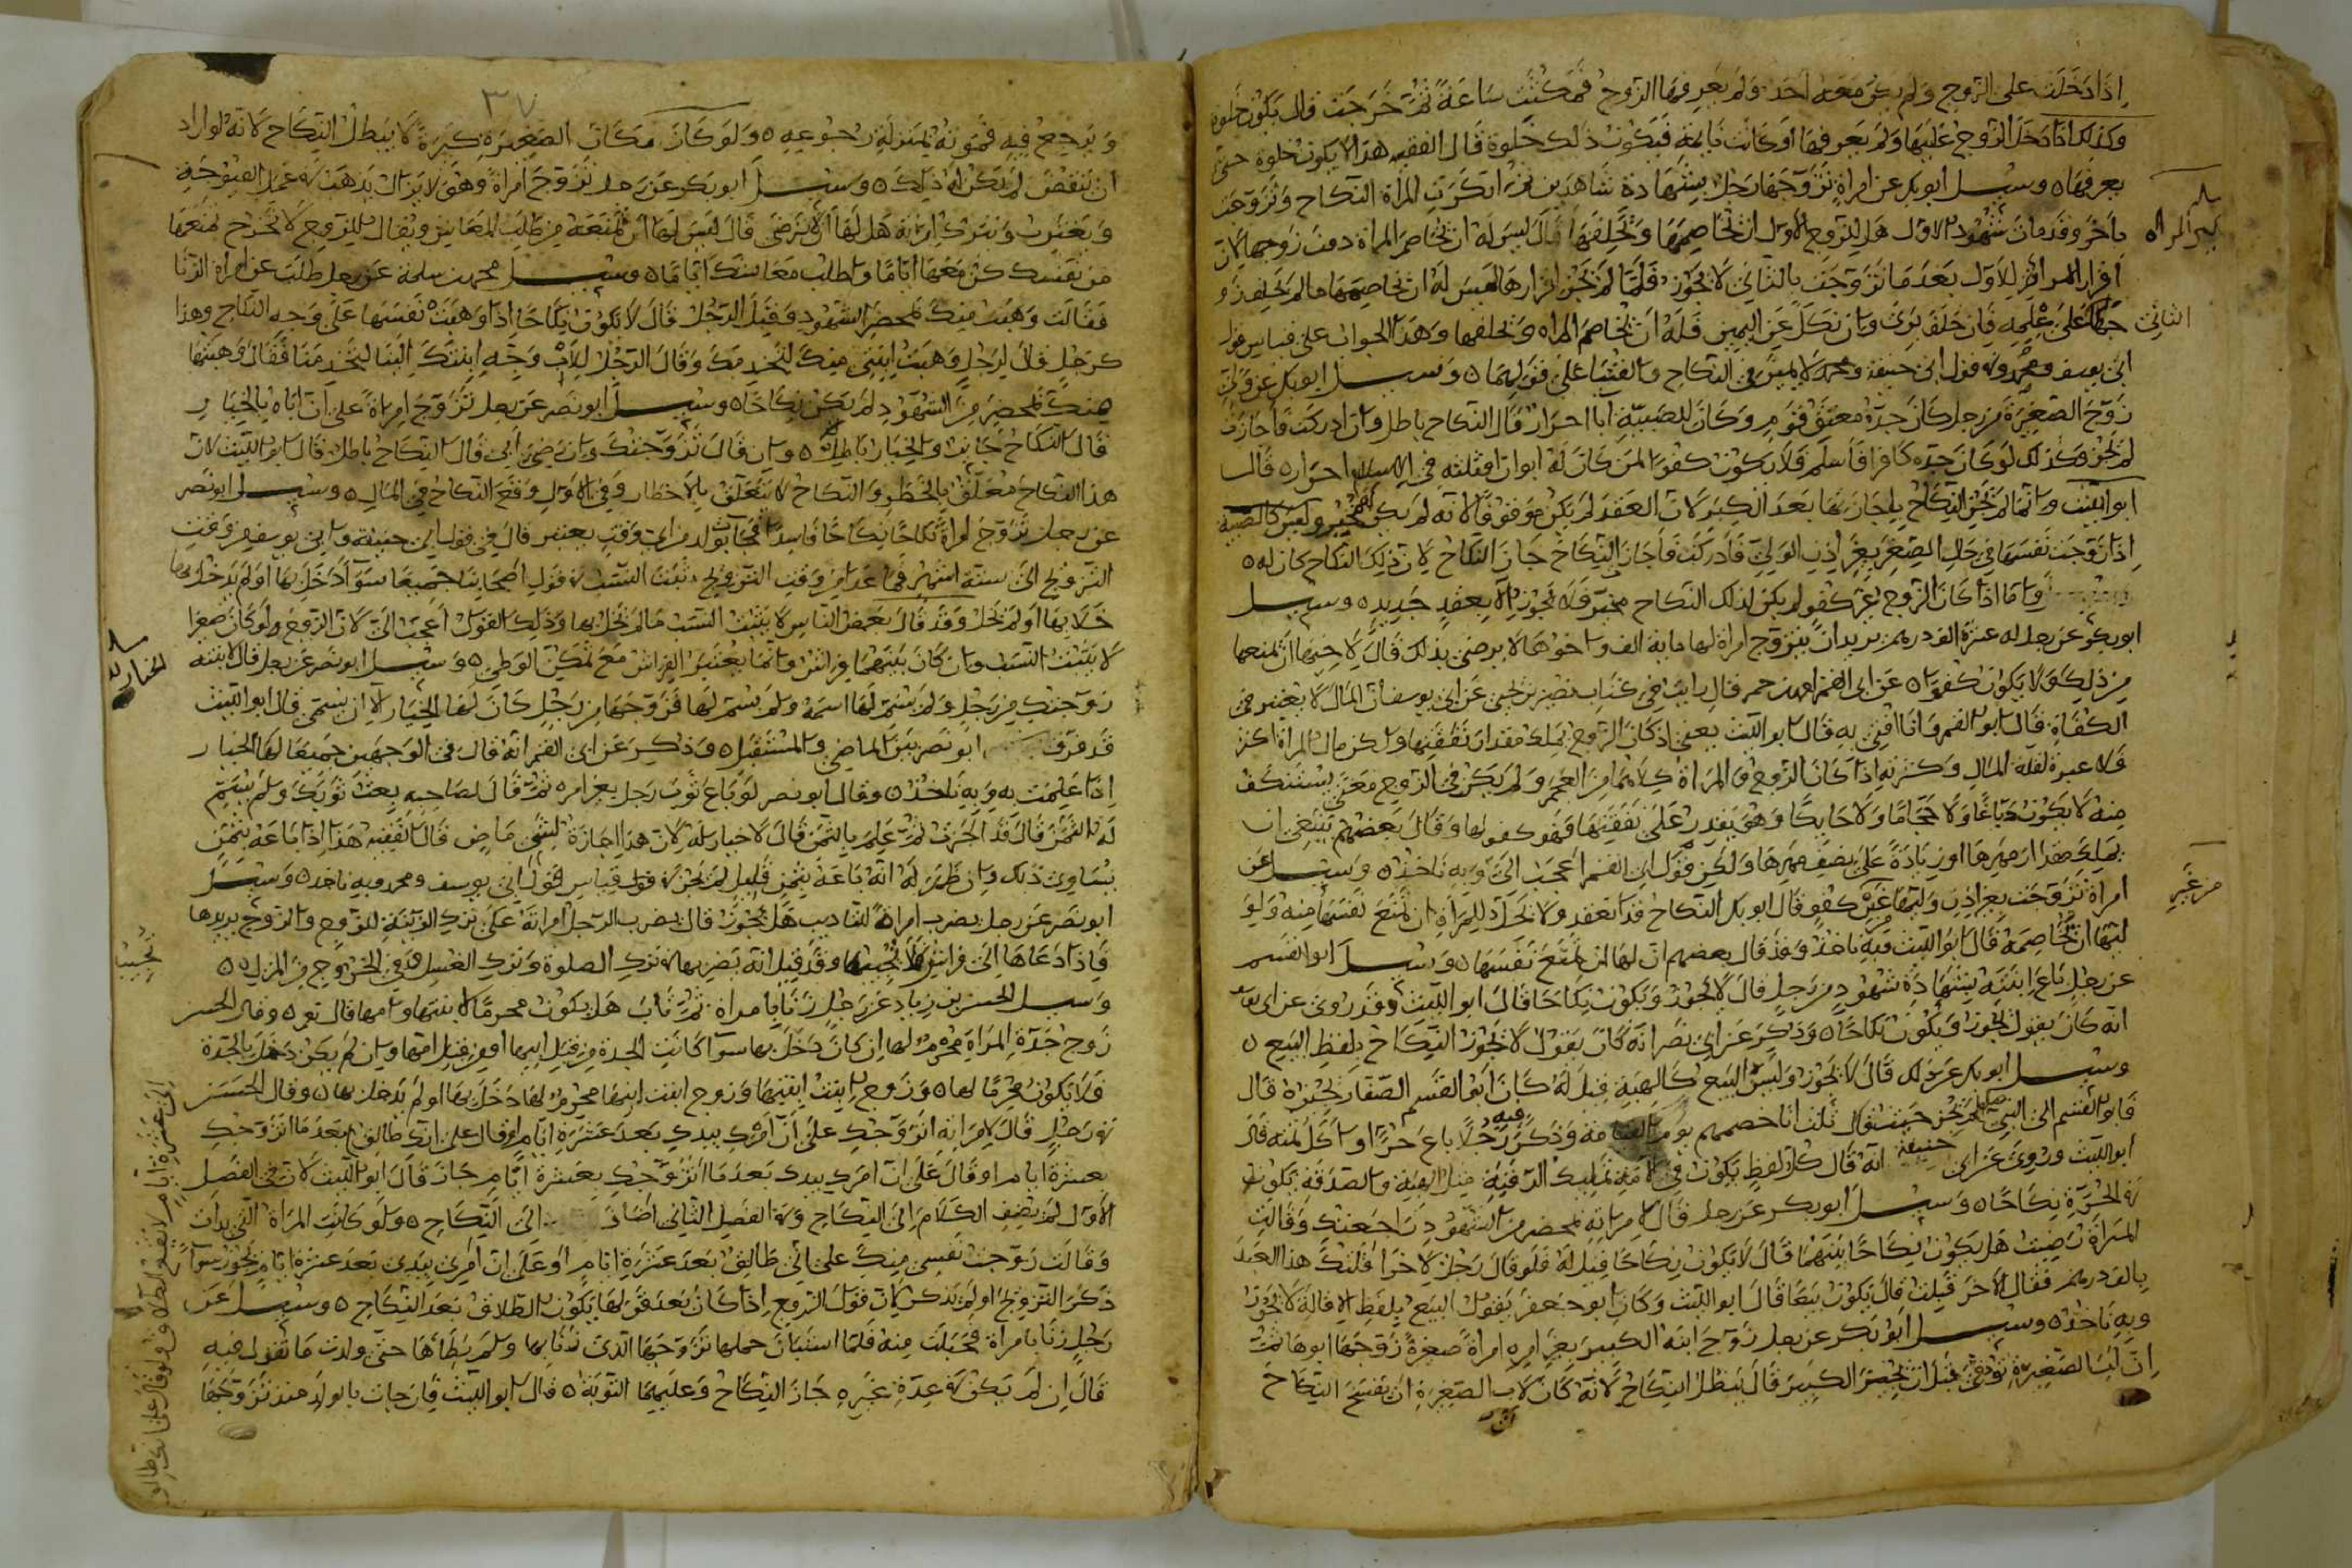 اذا دخلت على الزوج ولم يكن معه احد ولم يعرفها الزوج فمكثت ساعة ثم خرجت قال يكون خلوة
وكذلك اذا دخل الزوج عليها ولم يعرفها او كانت نايمة فيكون ذلك خلوة قال الفقيه هذا لا يكون خلوة حتى
يعرفها ه وسيل ابو بكر عن امراة تزوجها رجل بشهادة شاهدين ثم انكرت المراة النكاح وتزوجت
باخر وقد مات شهود الاول هل للزوج الاول ان يخاصمها ويحلفها قال ليس له ان يخاصم المراة دون زوجها لان
اقرار المراة للاول بعد ما تزوجت بالثاني لا يجوز فلما لم يجز اقرارها ليس له ان يخاصمها ما لم يحلف زو
الثاني
جها على علمه فان حلف برئ وان نكل عن اليمين فله ان يخاصم المراه ويحلفها وهذا الجواب على قياس قول
ابي يوسف ومحمد وفي قول ابي حنيفة رحمه لا يمين في النكاح والفتيا على قولهما ه وسيل ابو بكر عن ولي
زوج الصغيرة من رجل كان جده معتق قوم وكان للصبية ابا احرار قال النكاح باطل وان ادركت فاجازت
لم يجز وكذلك لو كان جده كافرا فاسلم فلا يكون كفوا لمن كان له ابوان او ثلثه في الاسلام احراره قال
ابو الليث وانما لم يجز النكاح باجازتها بعد الكبر لان العقد لم يكن موقوفا لانه لم يكن له مجيز وليس كالصبية
اذا زوجت نفسها في حال الصغر بغير اذن الولي فادركت فاجاز النكاح جاز النكاح لان ذلك النكاح كان له ه
واما اذا كان الزوج غير كفو لم يكن لذلك النكاح مجيز فلا يجوز الا بعقد جديد ه وسيل
ابو بكر عن رجل له عشرة الف درهم يريد ان يتزوج امراة لها ماية الف واخوها لا يرضى بذلك قال لاخيها ان يمنعها
من ذلك ولا يكون كفوا ه عن ابي القسم احمد بن حم قال رايت في كتاب نصير بن يحيى عن ابي يوسف ان المال لا يعتبر في
الكفاة قال ابو القسم وانا افتي به قال ابو الليث يعني اذ كان الزوج يملك مقدار نفقتها وان كان مال المراة اكثر
فلا عبرة لقلة المال وكثرته اذا كان الزوج والمراة كلاهما من العجم ولم يكن في الزوج معنى يستنكف
منه لا يكون دباغا ولا حجاما ولا حايكا وهو يقدر على نفقتها فهو كفو لها وقال بعضهم ينبغي ان
يملك مقدار مهرها او زيادة على نصف مهرها ولكن قول ابي القسم اعجب الي وبه ناخذ ه وسيل عن
امراة تزوجت بغير اذن وليها غير كفو قال ابو بكر النكاح قد انعقد ولا يحل للمراة ان تمنع نفسها منه ولو
ليها ان يخاصمه قال ابو الليث فبه ناخذ وقد قال بعضهم ان لها ان تمنع نفسها ه وسيل ابو القسم
عن رجل باع ابنته بشهادة شهود من رجل قال لا يجوز ويكون نكاحا قال ابو الليث وقد روي عن ابي بكر
انه كان يقول يجوز ويكون نكاحا ه وذكر عن ابي نصر انه كان يقول لا يجوز النكاح بلفظ البيع ه
وسيل ابو بكر عن ذلك قال لا يجوز وليس البيع كالهبة قيل له كان ابو القسم الصفار يجيزه قال
فابو القسم الى النبي صلعم ثلث انا خصمهم يوم القيامة وذكر فيه رجلا باع حرا واكل ثمنه قال
ابو الليث وروي عن ابي حنيفة انه قال كل لفظ يكون في الامة تمليك الرقبة مثل الهبة والصدقة يكون
في الحرة نكاحا ه وسيل ابو بكر عن رجل قال لامراته بمحضر من الشهود راجعتك وقالت
المراة رضيت هل يكون نكاحا بينهما قال لا يكون نكاحا قيل له فلو قال رجل لاخر اقلتك هذا العبد
بالف درهم فقال الاخر قبلت قال يكون بيعا قال ابو الليث وكان ابو جعفر يقول البيع بلفظ الاقالة لا يجوز
وبه ناخذ ه وسيل ابو بكر عن رجل زوج ابنه الكبير بغير امره امراة صغيرة زوجها ابوها ثم
ان اب الصغيرة توفي قبل ان يجيز الكبير قال يبطل النكاح لانه كان لاب الصغيرة ان يفسخ النكاح
من غير
٣٧
ويرجع فيه فموته بمنزلة رجوعه ه ولو كان مكان الصغيرة كبيرة لا يبطل النكاح لانه لو اراد
ان ينقض لم يكن له ذلك ه وسيل ابو بكر عن رجل تزوج امراة وهو لا يزال يذهب
ويغترب ويترك امراته هل لها ان لا ترضى قال ليس لها ان تمنعه من طلب المعايش ويقال للزوج لا تخرج تمنعها
من نفسك كن معها اياما واطلب معايشك اياما ه وسيل محمد بن سلمة عن رجل طلب عن امراة الزنا
فقالت وهبت منك بمحضر الشهود وقبل الرجل قال لا يكون نكاحا اذا وهبت نفسها على وجه النكاح وهذا
كرجل قال لرجل وهبت ابنتي منك لتخدمك وقال الرجل للاب وجه ابنتك الينا لتخدمنا فقال وهبتها
منك بمحضر من الشهود لم يكن نكاحا ه وسيل ابو نصر عن رجل تزوج امراة على ان اباه بالخيار
قال النكاح جايز والخيار باطل ه وان قال تزوجتك وان رضي ابي قال النكاح باطل قال ابو الليث لان
هذا النكاح معلق بالخطر والنكاح لا يتعلق بالاخطار وفي الاول وقع النكاح في الحال ه وسيل ابو نصر
عن رجل تزوج امراة نكاحا فاسدا فجات بولد من اي وقت يعتبر قال في قول ابي حنيفة وابي يوسف من وقت
التزويج الى ستة اشهر فصاعدا من وقت التزويج ثبت النسب في قول اصحابنا جميعا سوا دخل بها او لم يدخل بها
خلا بها او لم يخل وقد قال بعض الناس لا يثبت النسب ما لم يخل بها وذلك القول اعجب الي لان الزوج لو كان صغيرا
لا يثبت النسب وان كان بينهما فراش وانما يعتبر الفراش مع تمكين الوطي ه وسيل ابو نصر عن رجل قال لابنته
زوجتك من رجل ولم يسم لها اسمه ولم يسم لها فزوجها من رجل كان لها الخيار الا ان يسمي قال ابو الليث
قد فرق ابو نصر بين الماضي والمستقبل ه وذكر عن ابي القسم انه قال في الوجهين جميعا لها الخيار
اذا علمت به وبه ناخذ ه وقال ابو نصر لو باع ثوب رجل بغير امره ثم قال لصاحبه بعت ثوبك ولم يسم
له الثمن قال قد اجزت ثم علم بالثمن قال لا خيار له لان هذا اجازة لشي ماض قال الفقيه هذا اذا باعه بثمن
يساوي ذلك وان ظهر له انه باعه بثمن قليل لم يجز في قول قياس قول ابي يوسف ومحمد وبه ناخذ ه وسيل
ابو نصر عن رجل يضرب امراة للتاديب هل يجوز قال يضرب الرجل امراته على ترك الزينة للزوج والزوج يريدها
فاذا دعاها الى فراش فلا تجيبه وقد قيل انه يضربها في ترك الصلوة وترك الغسل وفي الخروج من المنزل ه
وسيل الحسن بن زياد عن رجل زنا بامراة ثم تاب هل يكون محرما لابنتها وامها قال نعم ه وقال الحسن
زوج جدة المراة محرم لها ان كان دخل بها سوا كانت الجدة من قبل ابيها او من قبل امها وان لم يكن دخل بالجدة
فلا يكون محرما لها ه وزوج ابنت ابنتها وزوج ابنت ابنها محرم لها دخل بها او لم يدخل بها ه وقال الحسن
في رجل قال لامراته اتزوجك على ان امرك بيدك بعد عشرة ايام او قال على انك طالق بعد ما اتزوجك
بعشرة ايام او قال على ان امرك بيدك بعد ما اتزوجك بعشرة ايام جاز قال ابو الليث لان في الفصل
الاول لم يضف الكلام الى النكاح وفي الفصل الثاني اضاف الى النكاح ه ولو كانت المراة التي بدات
وقالت زوجت نفسي منك على اني طالق بعد عشرة ايام او على ان امري بيدي بعد عشرة ايام يجوز سوا
ذكر التزويج او لم يذكر لان قول الزوج اذا كان بعد قولها يكون الطلاق بعد النكاح ه وسيل عن
رجل زنا بامراة فحبلت منه فلما استبان حملها تزوجها الذي زنا بها ولم يطاها حتى ولدت ما تقول فيه
قال ان لم يكن في عدة غيره جاز النكاح وعليهما التوبة ه قال ابو الليث فان جات بالولد منذ تزوجها